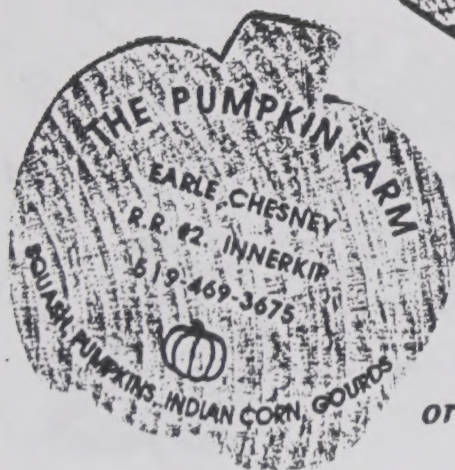 THE PUMPKIN FARM
EARLE CHESNEY
R.R. #2. INNERKIP
619-469-3675
SQUASH, PUMPKINS, INDIAN CORN, GOURDS
OT